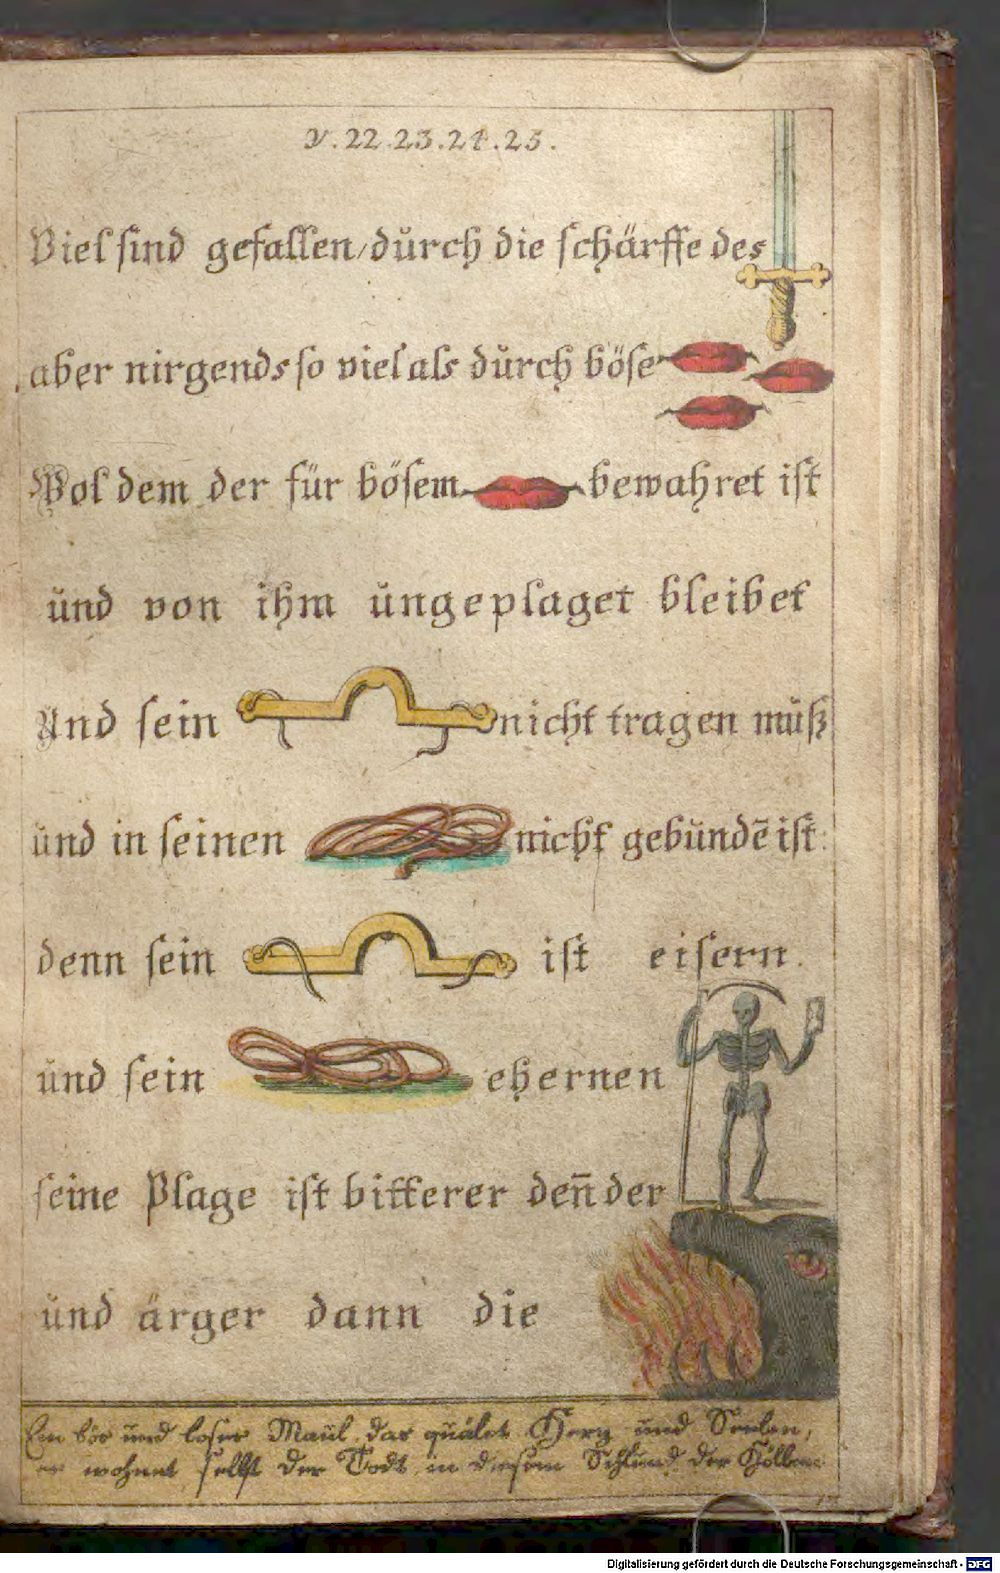 V. 22.23.24.25.
Viel sind gefallen/ durch die schärffe des
aber nirgends so viel als durch böse
Wol dem der für bösem bewahret ist
und von ihm ungeplaget bleibet
Und sein nicht tragen muß
und in seinen nicht gebundē ist:
denn sein ist eisern.
und sein ehernen
seine Plage ist bitterer den̄ der
und ärger dann die
Ein bös und loses Maul, das quälet Hertz und Seelen,
es wohnet selbst der Todt in diesem Schlund der Höllen.
Digitalisierung gefördert durch die Deutsche Forschungsgemeinschaft - DFG